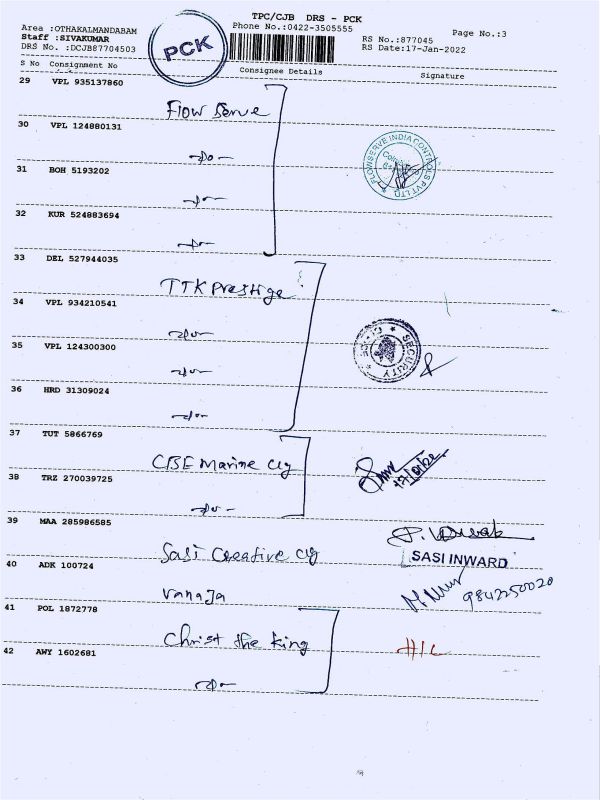 TPC/CJB DRS - PCK
Area :OTHAKALMANDABAM
Phone No.:0422-3505555
Page No.:3
Staff :SIVAKUMAR
RS No.:877045
DRS No. :DCJB87704503
RS Date:17-Jan-2022
PCK
S No Consignment No Consignee Details Signature
29 VPL 935137860
Flow Serve
30 VPL 124880131
-do-
FLOWSERVE INDIA CONTROLS PVT LTD
31 BOH 5193202
-do-
32 KUR 524883694
-do-
33 DEL 527944035
TTK Prestige
34 VPL 934210541
-do-
SECURITY
35 VPL 124300300
-do-
36 HRD 31309024
-do-
37 TUT 5866769
CBE Marine clg
17/01/22
38 TRZ 270039725
-do-
39 MAA 285986585
Sasi Creative clg
SASI INWARD
40 ADK 100724
Vanaja
9842250020
41 POL 1872778
Christ the King
H/L
42 AWY 1602681
-do-